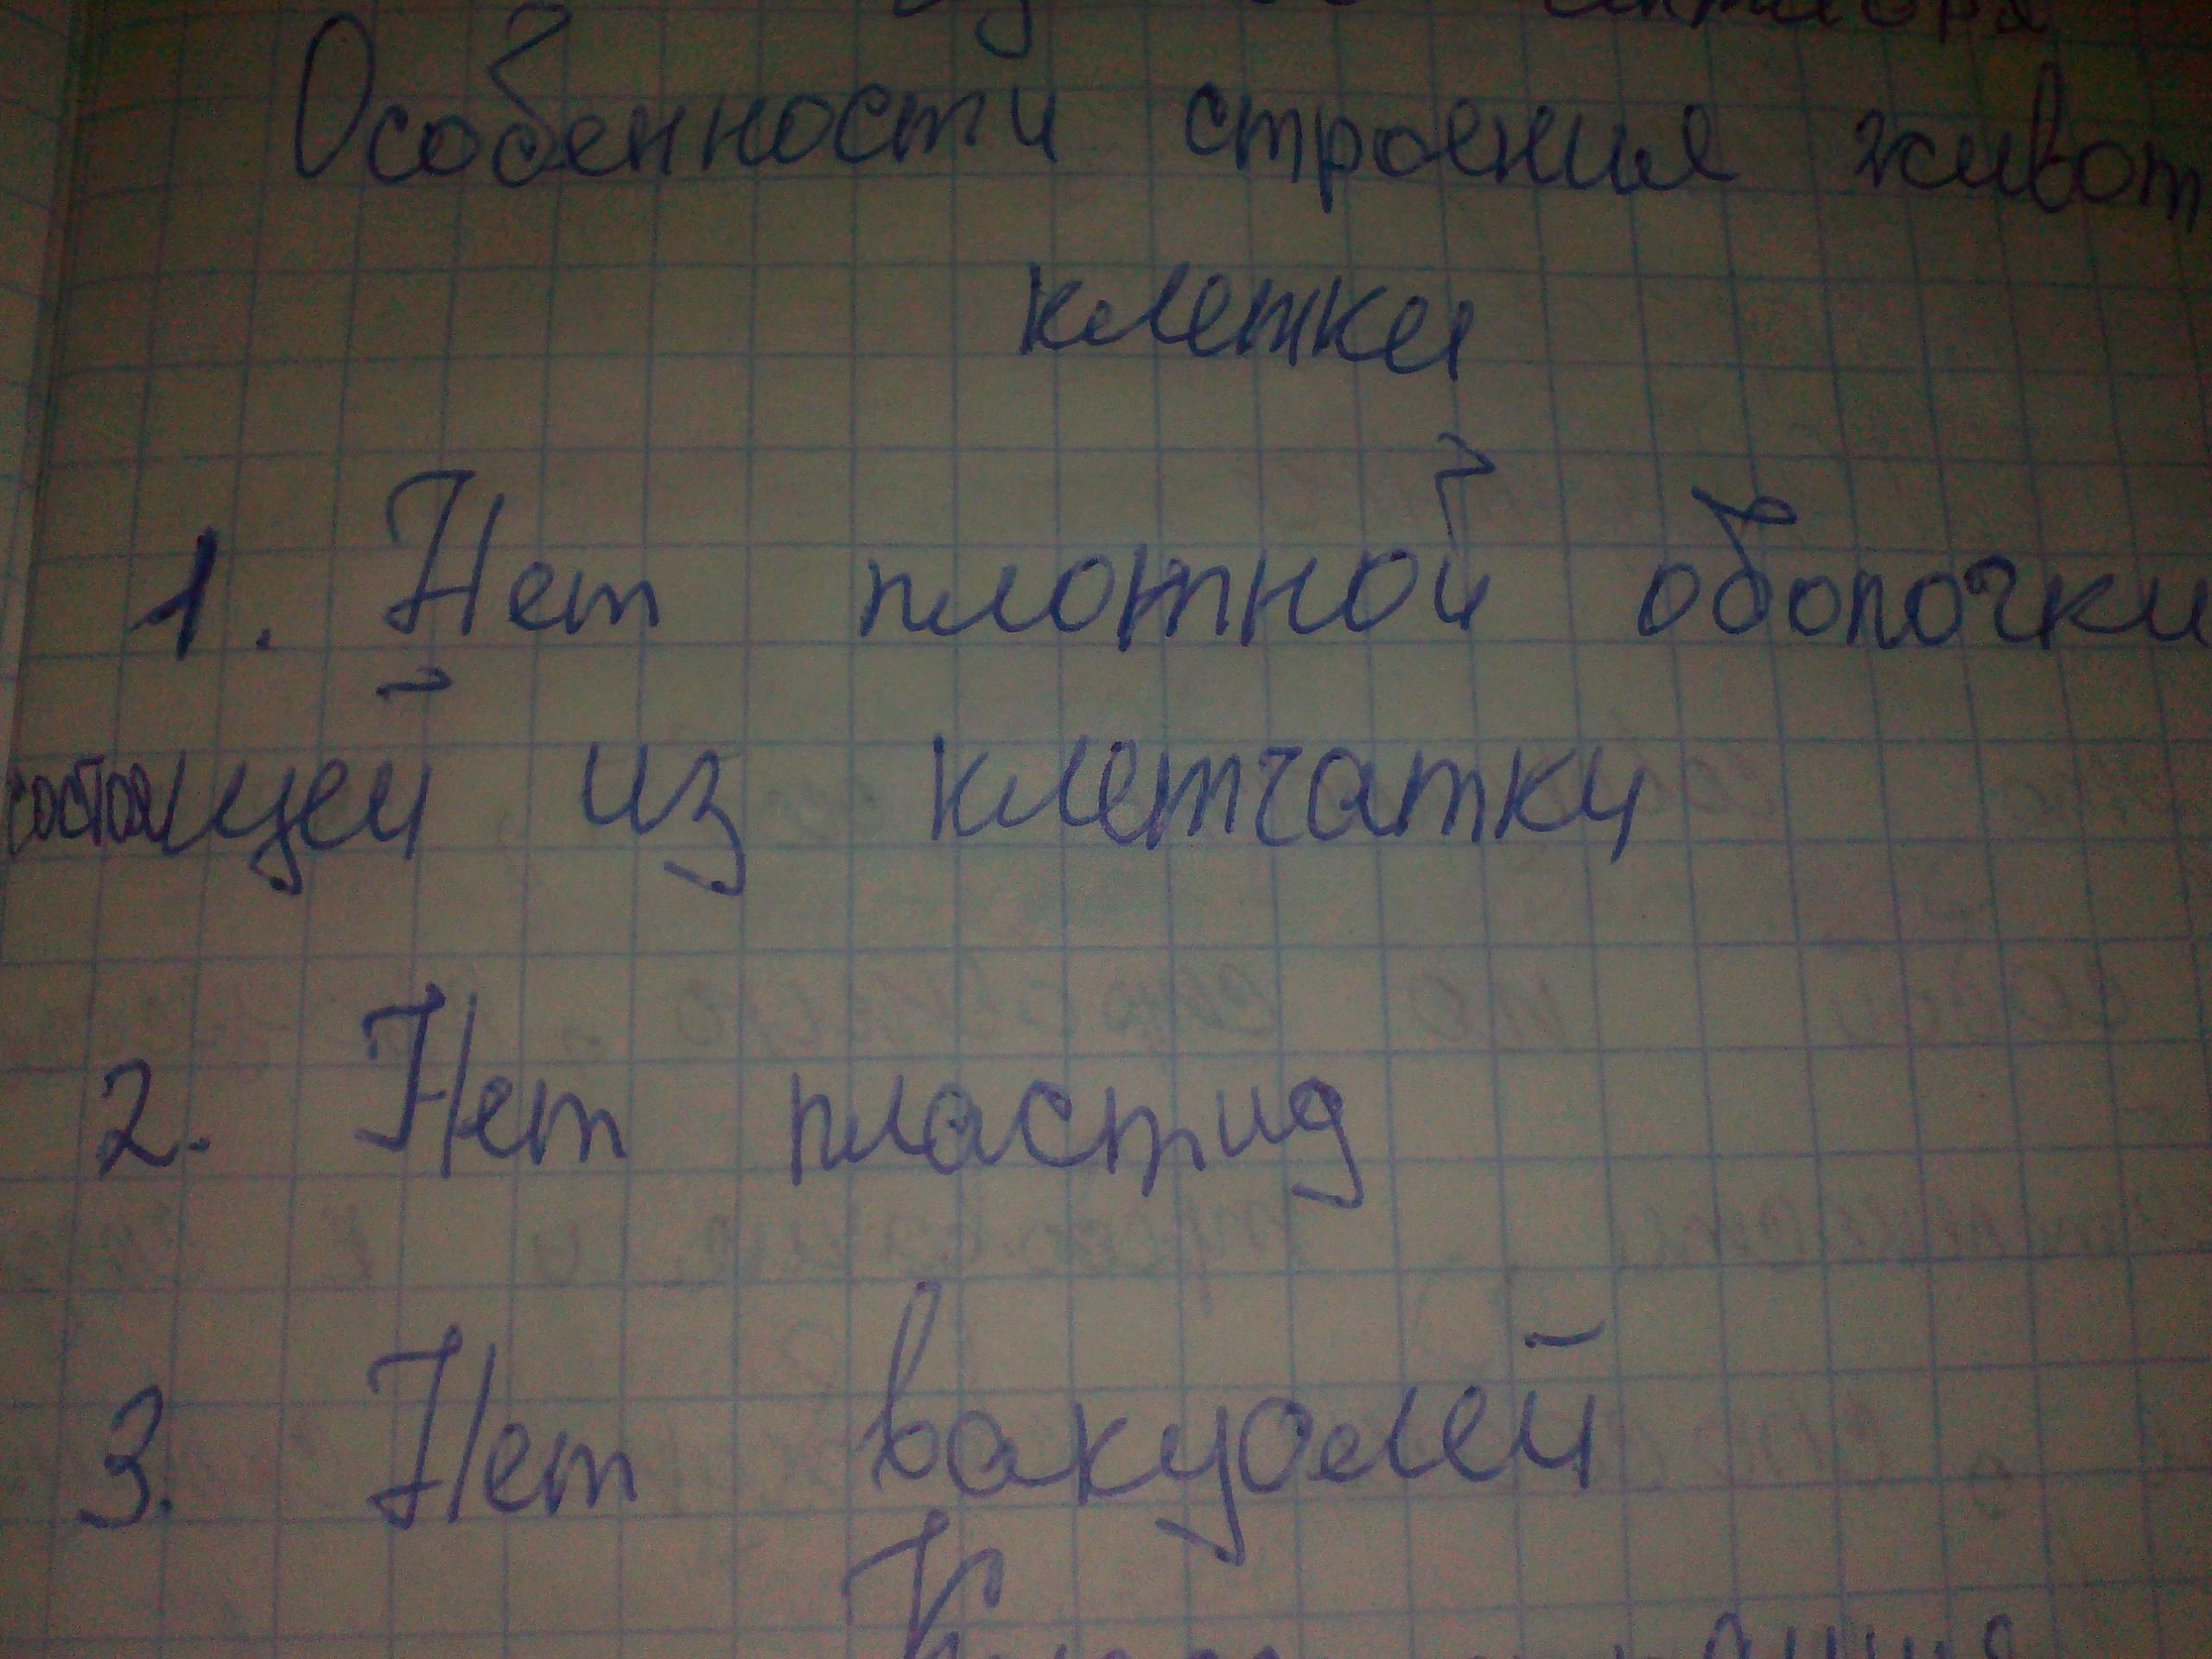 Особенности строения живот
клетки
1. Нет плотной оболочки
состоящей из клетчатки
2. Нет пластид
3. Нет вакуолей